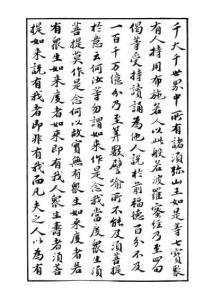 千大千世界中所有諸須弥山王如是等七寶聚
有人持用布施若人以此般若波羅蜜經乃至四句
偈等受持讀誦為他人說於前福德百分不及
一百千万億分乃至算數譬喻所不能及須菩提
於意云何汝等勿謂如来作是念我當度衆生須
菩提莫作是念何以故實無有衆生如来度者若
有衆生如来度者如来即有我人衆生壽者須菩
提如来說有我者即非有我而凡夫之人以為有